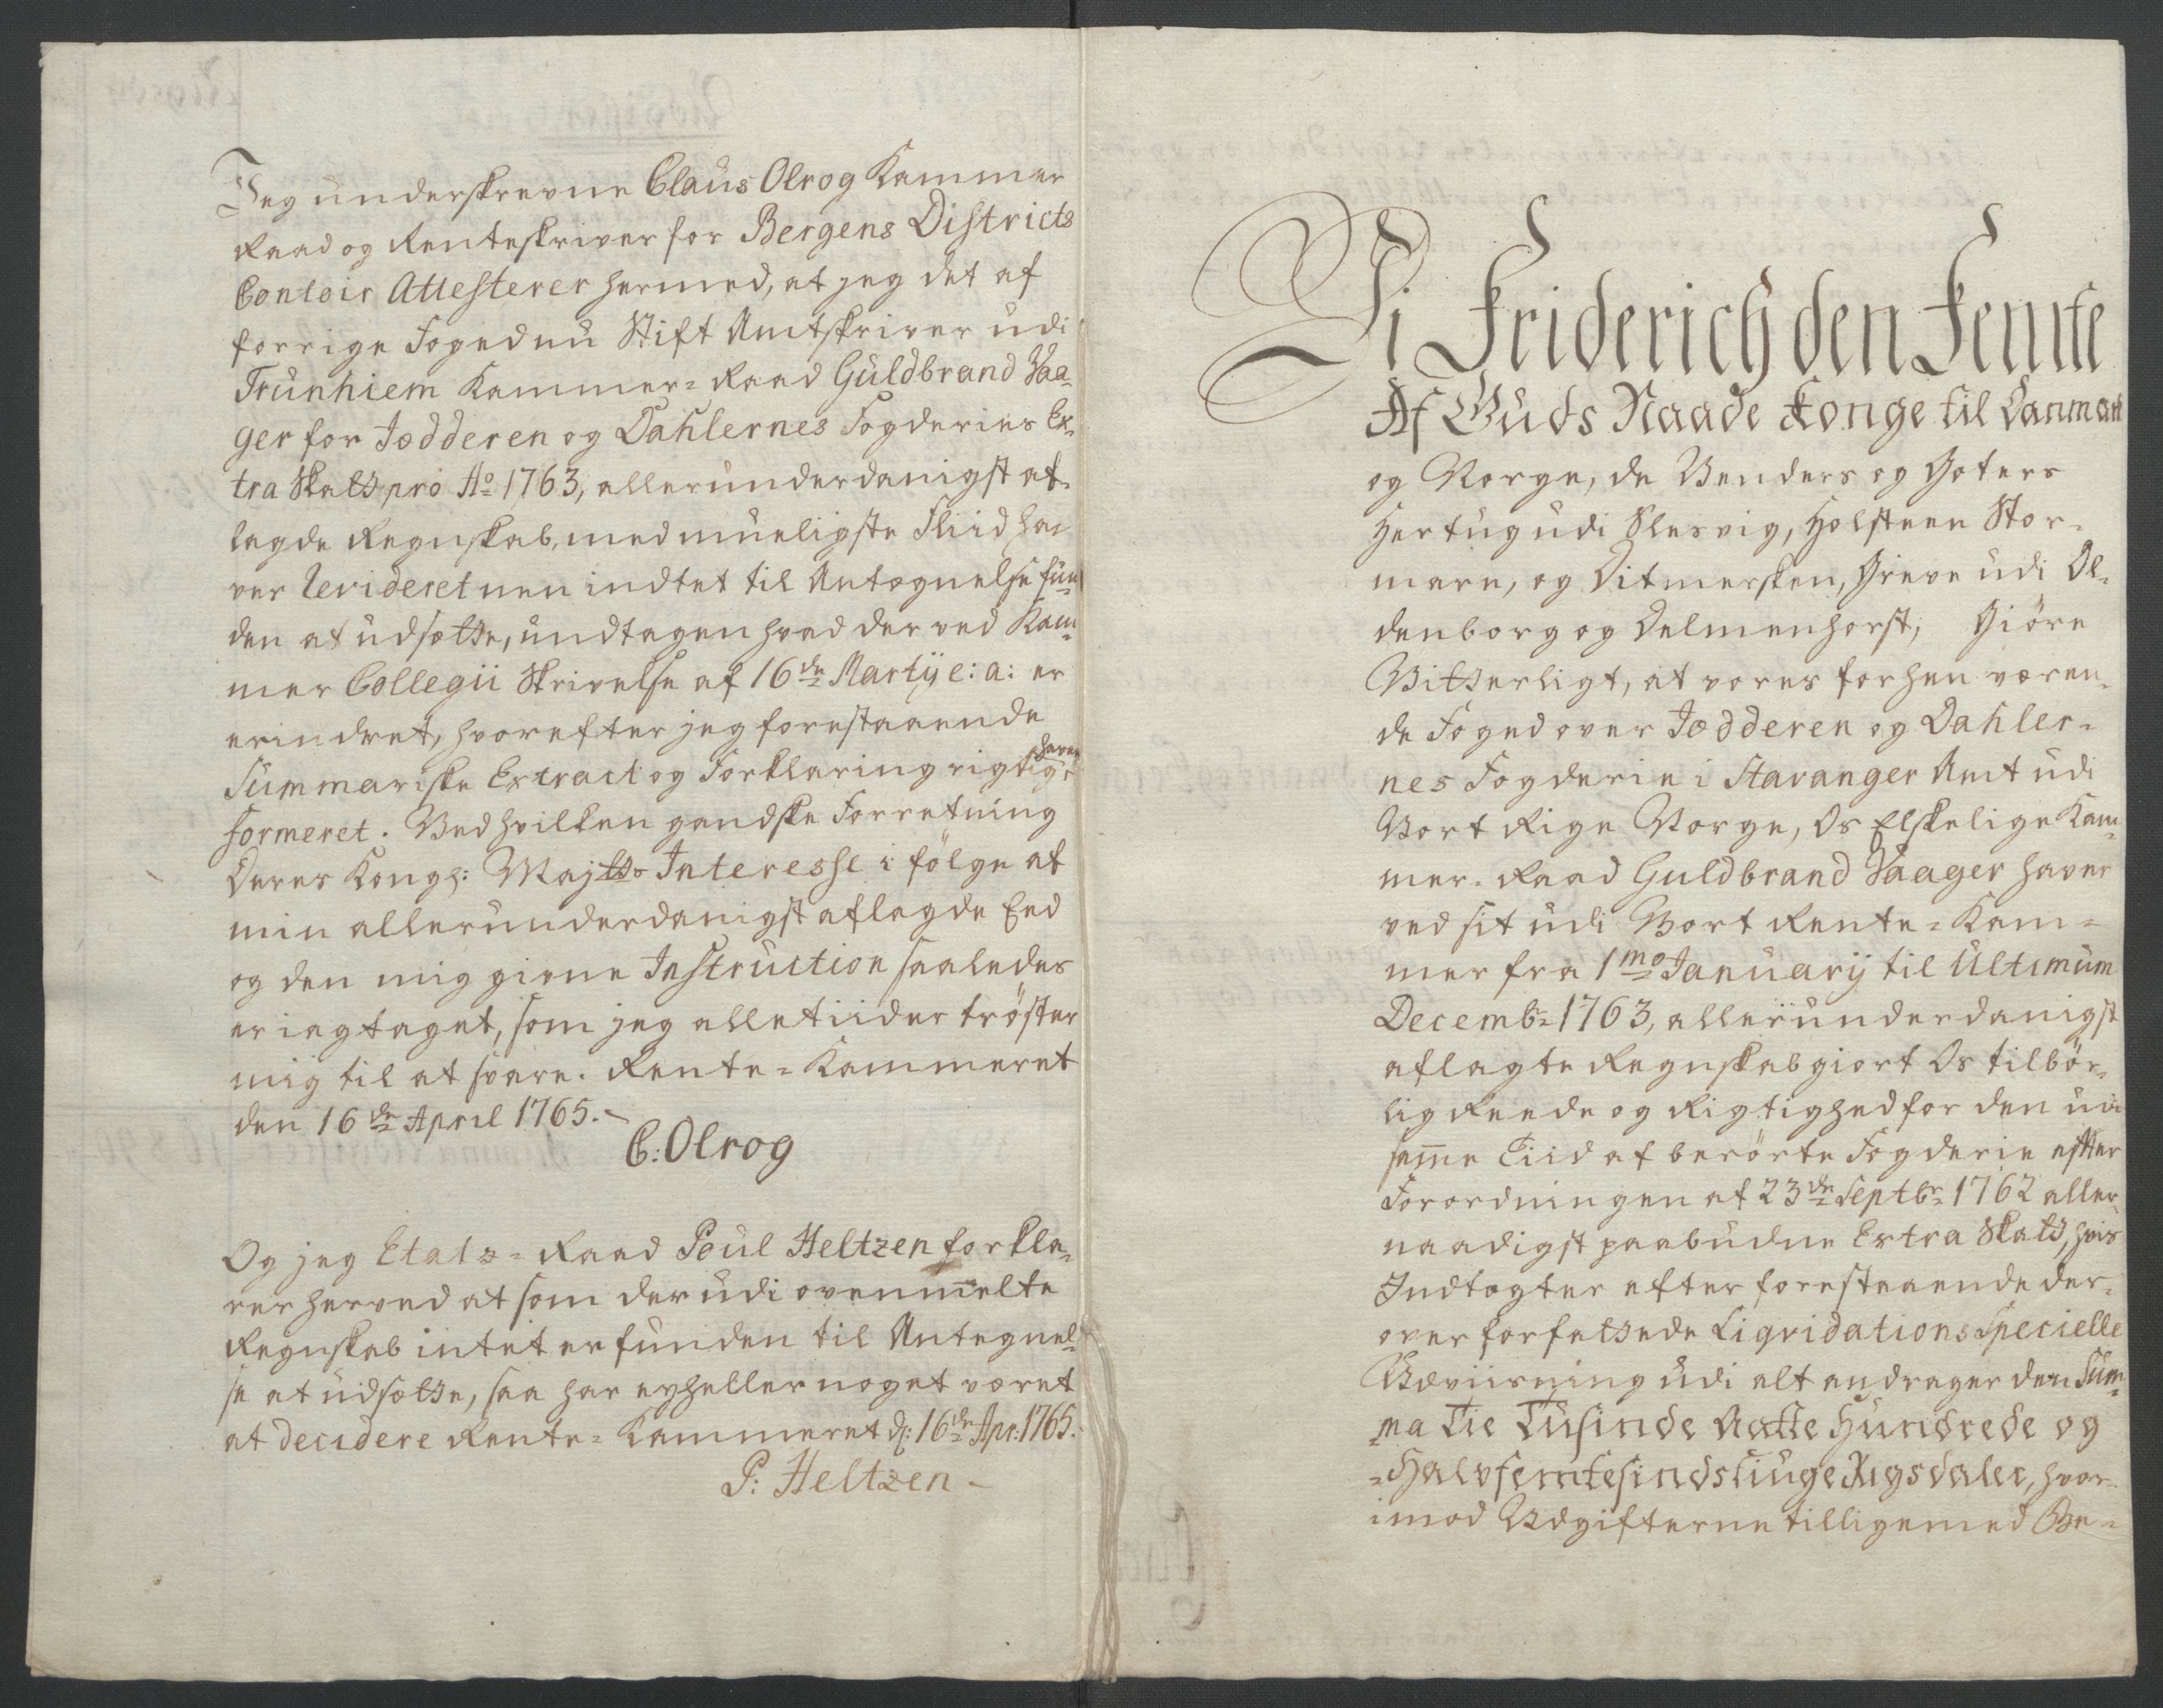 Jeg underskrevne Claus Olrog Kammer
Raad og Renteskriver for Bergens Districts
Contoir Attesterer hermed, at jeg det af
forrige Foged nu Stift Amtskriver udi
Trunhiem Kammer-Raad Guldbrand Vaa-
ger for Jædderen og Dahlernes Fogderies Ex-
tra Skatt pro Ao 1763, allerunderdanigst af-
lagde Regnskab, med mueligste Fliid ha-
ver Revideret men indtet til Antegnelse fun-
den at udsætte, undtagen hvad der ved Kam-
mer Collegii Skrivelse af 16de Martij e: a: er
erindret, hvorefter jeg forestaaende
Summariske Extract og Forklaring rigtig haver
formeret. Ved hvilken gandske Forretning
Deres Kongl: Majtts Interesse i følge af
min allerunderdanigst aflagde Eed
og den mig givne Instruction saaledes
er iagtaget, som jeg alletiider trøster
mig til at svare. Rente-Kammeret
den 16de April 1765.
C: Olrog
Og jeg Etats-Raad Poul Heltzen forkla-
rer herved at som der udi ovenmelte
Regnskab intet er funden til Antegnel-
se at udsætte, saa har ey heller noget været
at decidere Rente-Kammeret d: 16de Apr: 1765.
P: Heltzen
Vi Friderich den Femte
Af Guds Naade Konge til Danmark
og Norge, de Venders og Goters
Hertug udi Slesvig, Holsteen Stor-
marn, og Ditmersken, Greve udi Ol-
denborg og Delmenhorst; Giöre
Vitterligt, at vores forhen væren-
de Foged over Jædderen og Dahler-
nes Fogderie i Stavanger Amt udi
Vort Rige Norge, Os Elskelige Kam-
mer-Raad Guldbrand Vaager haver
ved sit udi Vort Rente-Kam-
mer fra 1mo Januarij til Ultimum
Decembr 1763, allerunderdanigst
aflagte Regnskab giort Os tilbör-
lig Reede og Rigtighed for den udi
samme Tiid af berörte Fogderie efter
Forordningen af 23de Septbr 1762 aller-
naadigst paabudne Extra Skatt, hvis
Indtægter efter forestaaende der-
over forfattede Liqvidations Specielle
Udviisning udi alt andrager den Sum-
ma Tie Tusinde Aatte Hundrede og
Halvfemtesindstiuge Rigsdaler, hvor-
imod Udgifterne tilligemed Be-